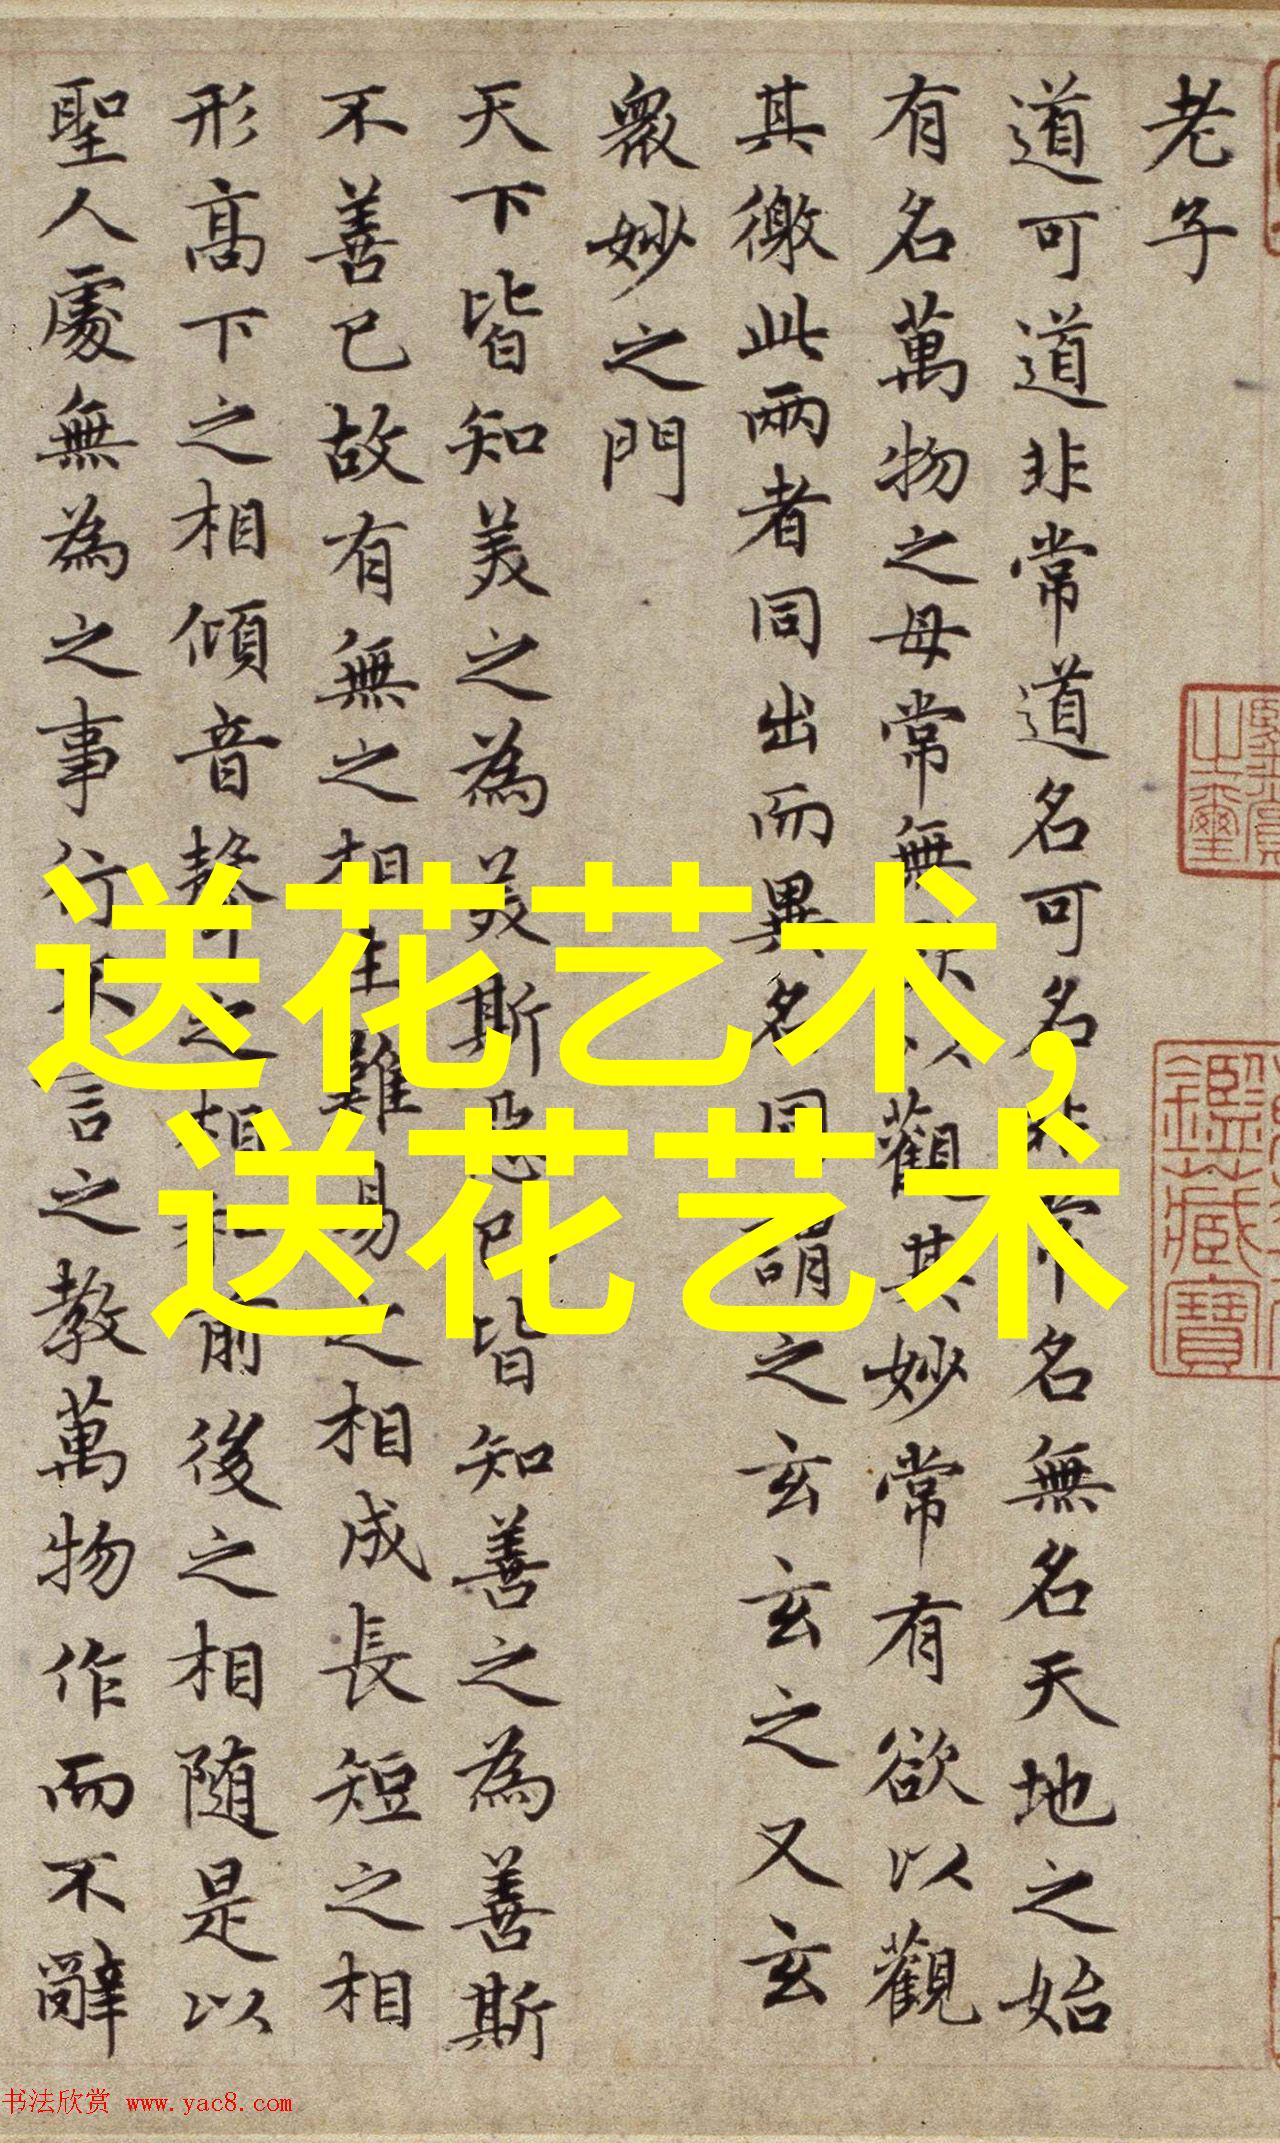 老子
道可道非常道名可名非常名無名天地之始
有名萬物之母常無欲以觀其妙常有欲以觀
其徼此兩者同出而異名同謂之玄玄之又玄
衆妙之門
天下皆知美之為美斯惡已皆知善之為善斯
不善已故有無之相生難易之相成長短之相
形高下之相傾音聲之相和前後之相随是以
聖人處無為之事行不言之教萬物作而不辭
送花艺术,
送花艺术
之璽
鑑藏寶
书法欣赏 www.yac8.com